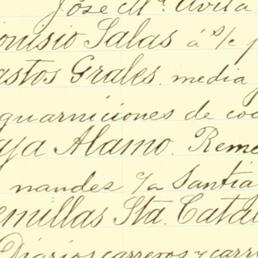 José Ma. Avila
onisio Salas á S/c p
astos Grales. media
guarniciones de co
aja Alamo. Reme
nandez s/a Santia
emillas Sta. Catal
Diarios carreros y carr